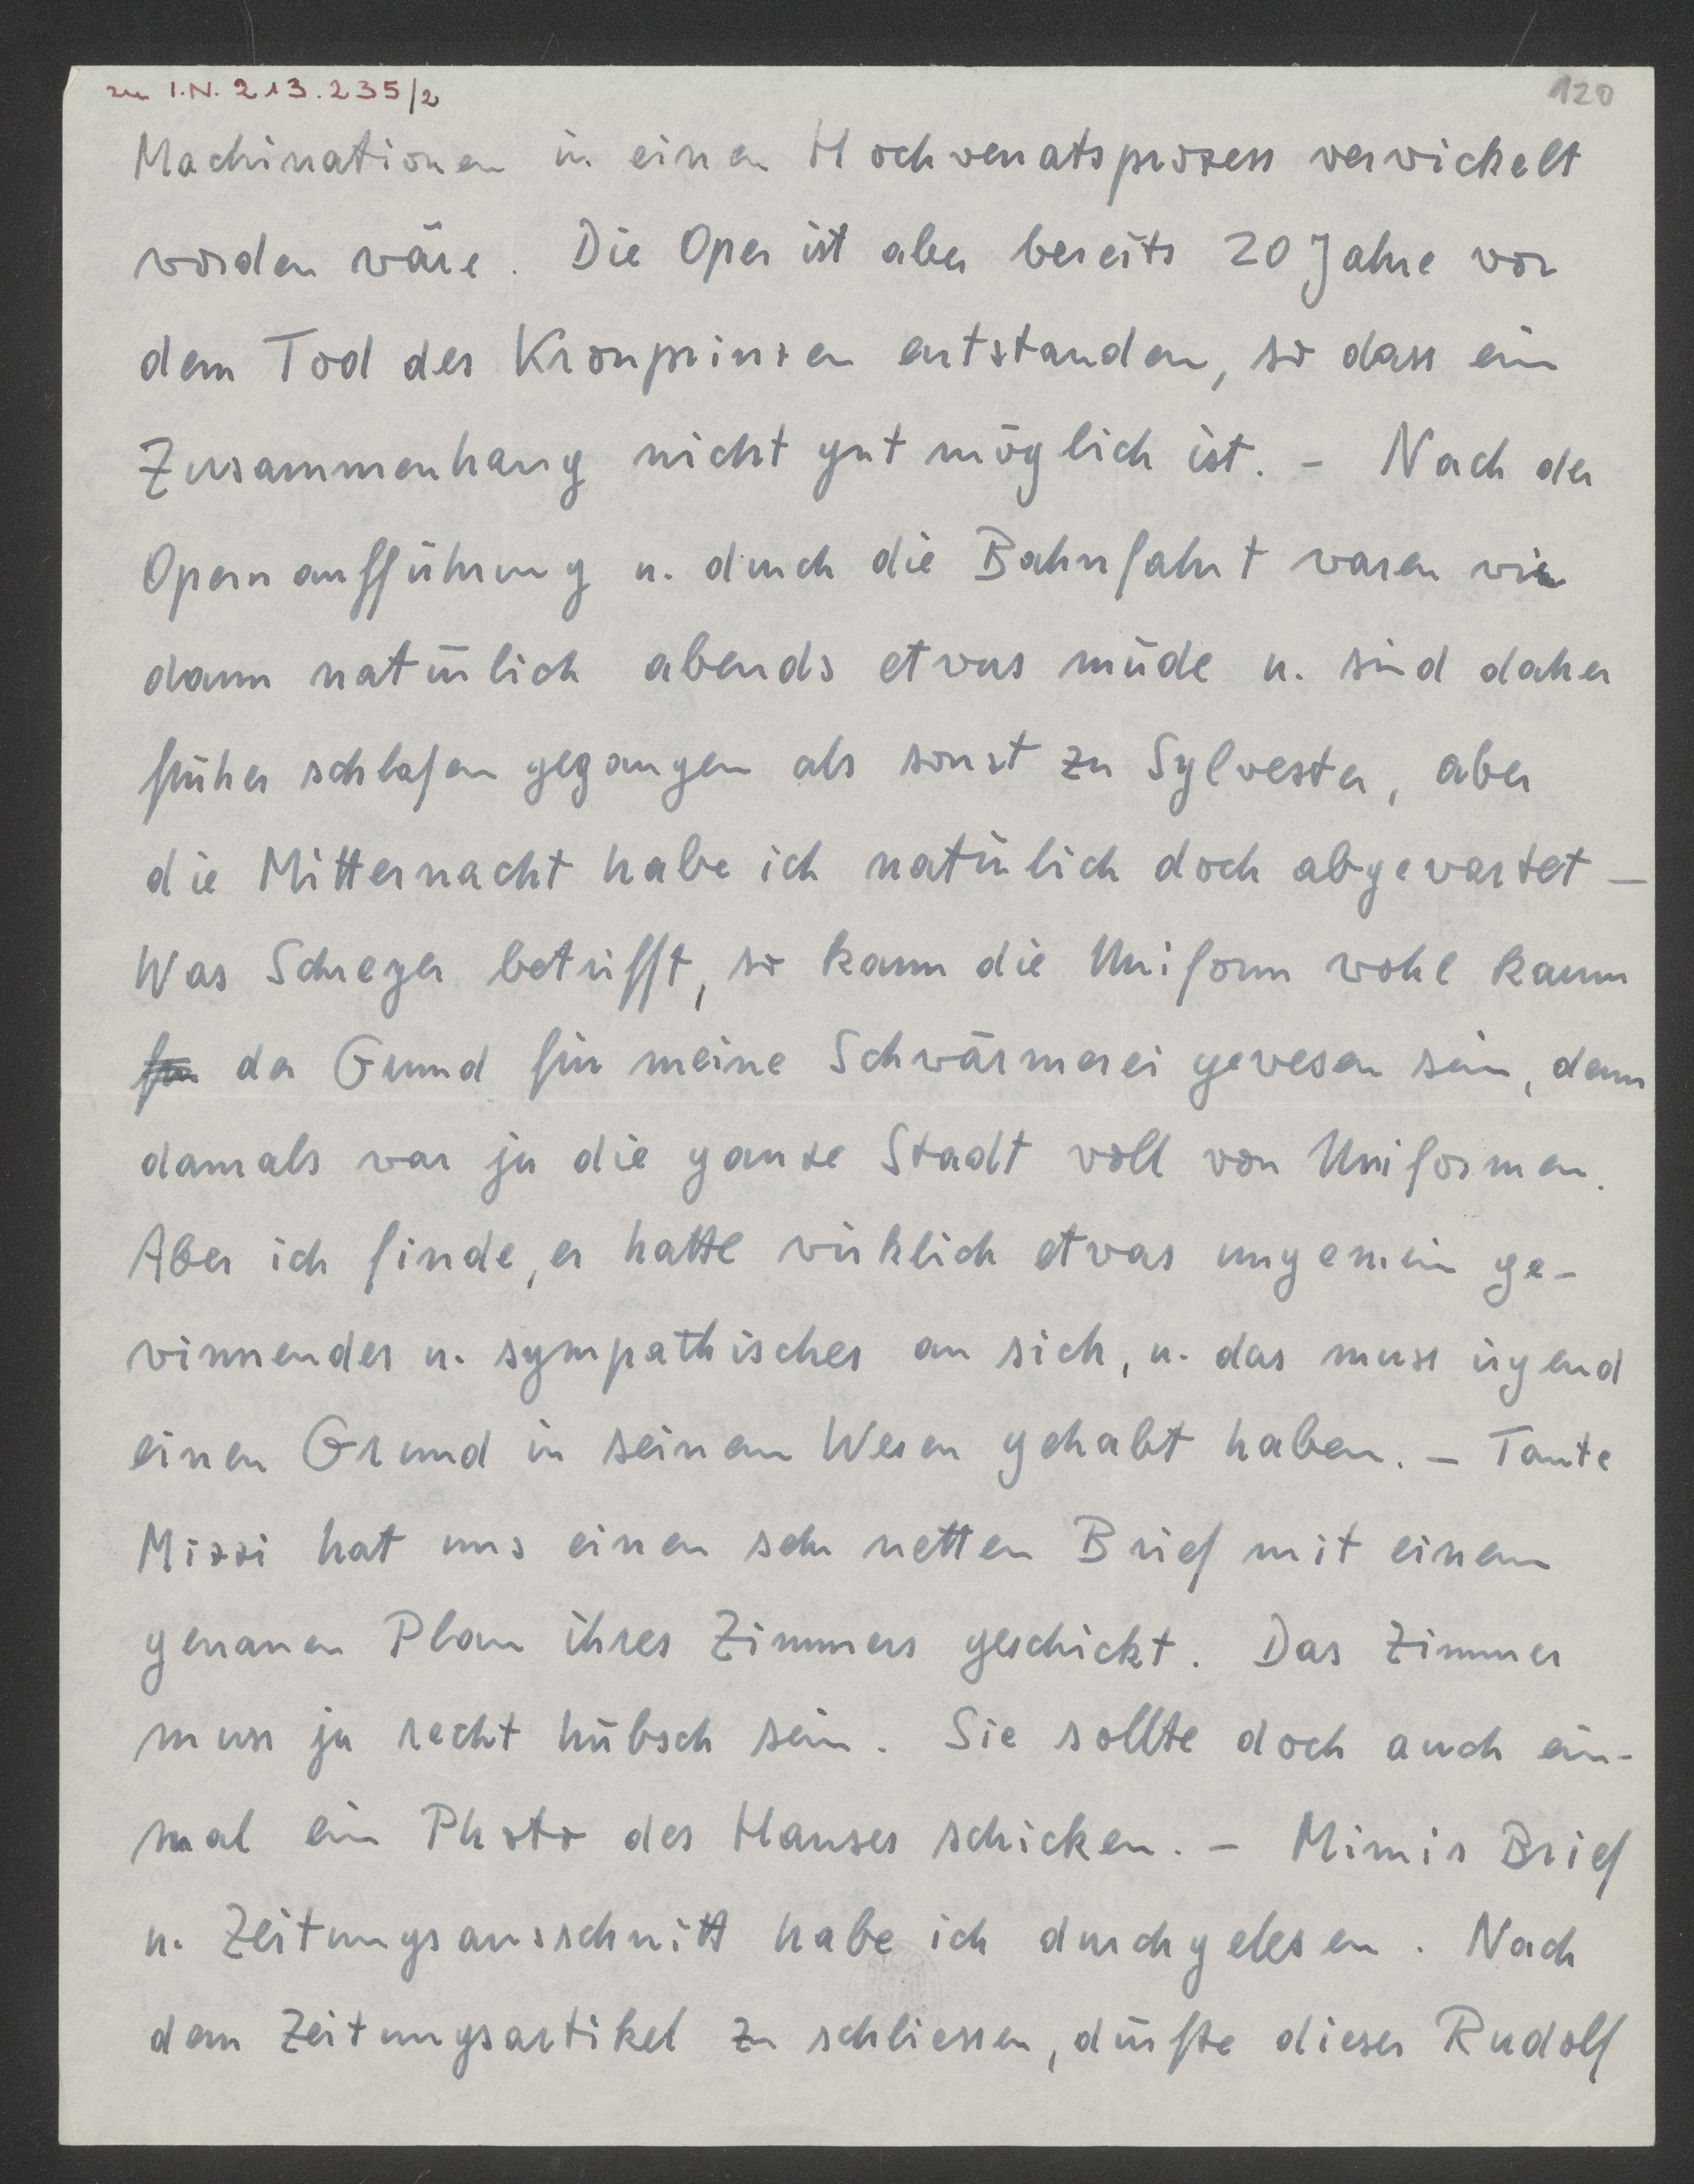 zu I.N. 213.235/2
120
Machinationen in einen Hochverratsprozess verwickelt
worden wäre. Die Oper ist aber bereits 20 Jahre vor
dem Tod des Kronprinzen entstanden, so dass ein
Zusammenhang nicht gut möglich ist. – Nach der
Opernaufführung u. durch die Bahnfahrt waren wir
dann natürlich abends etwas müde u. sind daher
früher schlafen gegangen als sonst zu Sylvester, aber
die Mitternacht habe ich natürlich doch abgewartet –
Was Schreyer betrifft, so kann die Uniform wohl kaum
der Grund für meine Schwärmerei gewesen sein, denn
damals war ja die ganze Stadt voll von Uniformen.
Aber ich finde, er hatte wirklich etwas ungemein ge-
winnendes u. sympathisches an sich, u. das muss irgend
einen Grund in seinem Wesen gehabt haben. – Tante
Mizzi hat uns einen sehr netten Brief mit einem
genauen Plan ihres Zimmers geschickt. Das Zimmer
muss ja recht hübsch sein. Sie sollte doch auch ein-
mal ein Photo des Hauses schicken. – Mimis Brief
u. Zeitungsausschnitt habe ich durchgelesen. Nach
dem Zeitungsartikel zu schliessen, dürfte dieser Rudolf